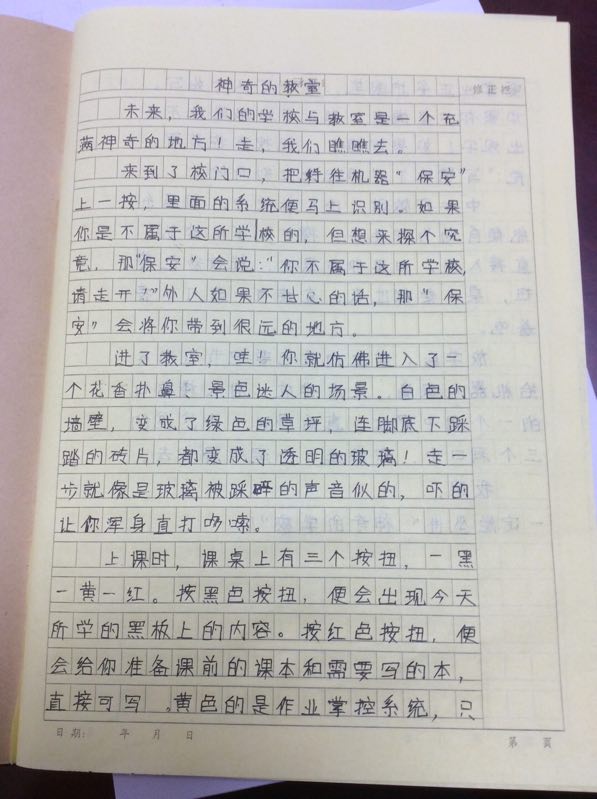 神奇的教室
修正栏
未来，我们的学校与教室是一个充
满神奇的地方！走，我们瞧瞧去。
来到了校门口，把纤往机器“保安”
上一按，里面的系统便马上识别。如果
你是不属于这所学校的，但想来探个究
竟，那“保安”会说：“你不属于这所学校，
请走开！”外人如果不甘心的话，那“保
安”会将你带到很远的地方。
进了教室，哇！你就仿佛进入了一
个花香扑鼻、景色迷人的场景。白色的
墙壁，变成了绿色的草坪，连脚底下踩
踏的砖片，都变成了透明的玻璃！走一
步就像是玻璃被踩碎的声音似的，吓的
让你浑身直打哆嗦。
上课时，课桌上有三个按扭，一黑
一黄一红。按黑色按扭，便会出现今天
所学的黑板上的内容。按红色按扭，便
会给你准备课前的课本和需要写的本，
直接可写。黄色的是作业掌控系统，只
日期： 年 月 日 第 页